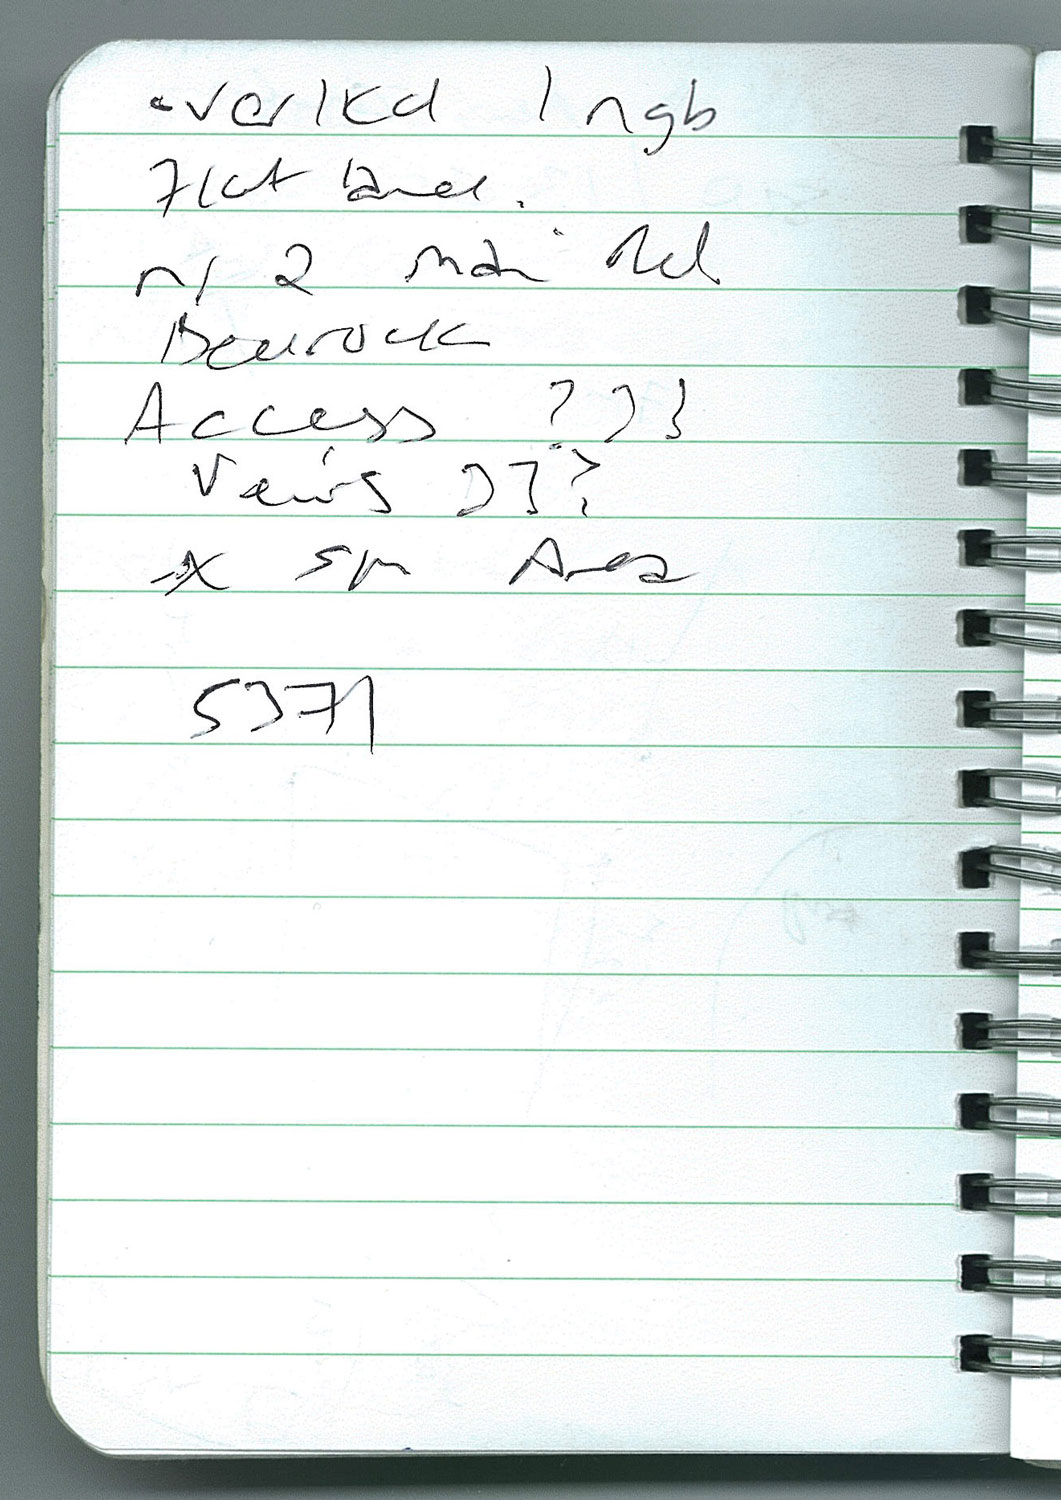 overlkd 1 ngb
Flat land.
n/ 2 main Rd
Bedrock
Access ???
Veiws ???
x sm Area
5371